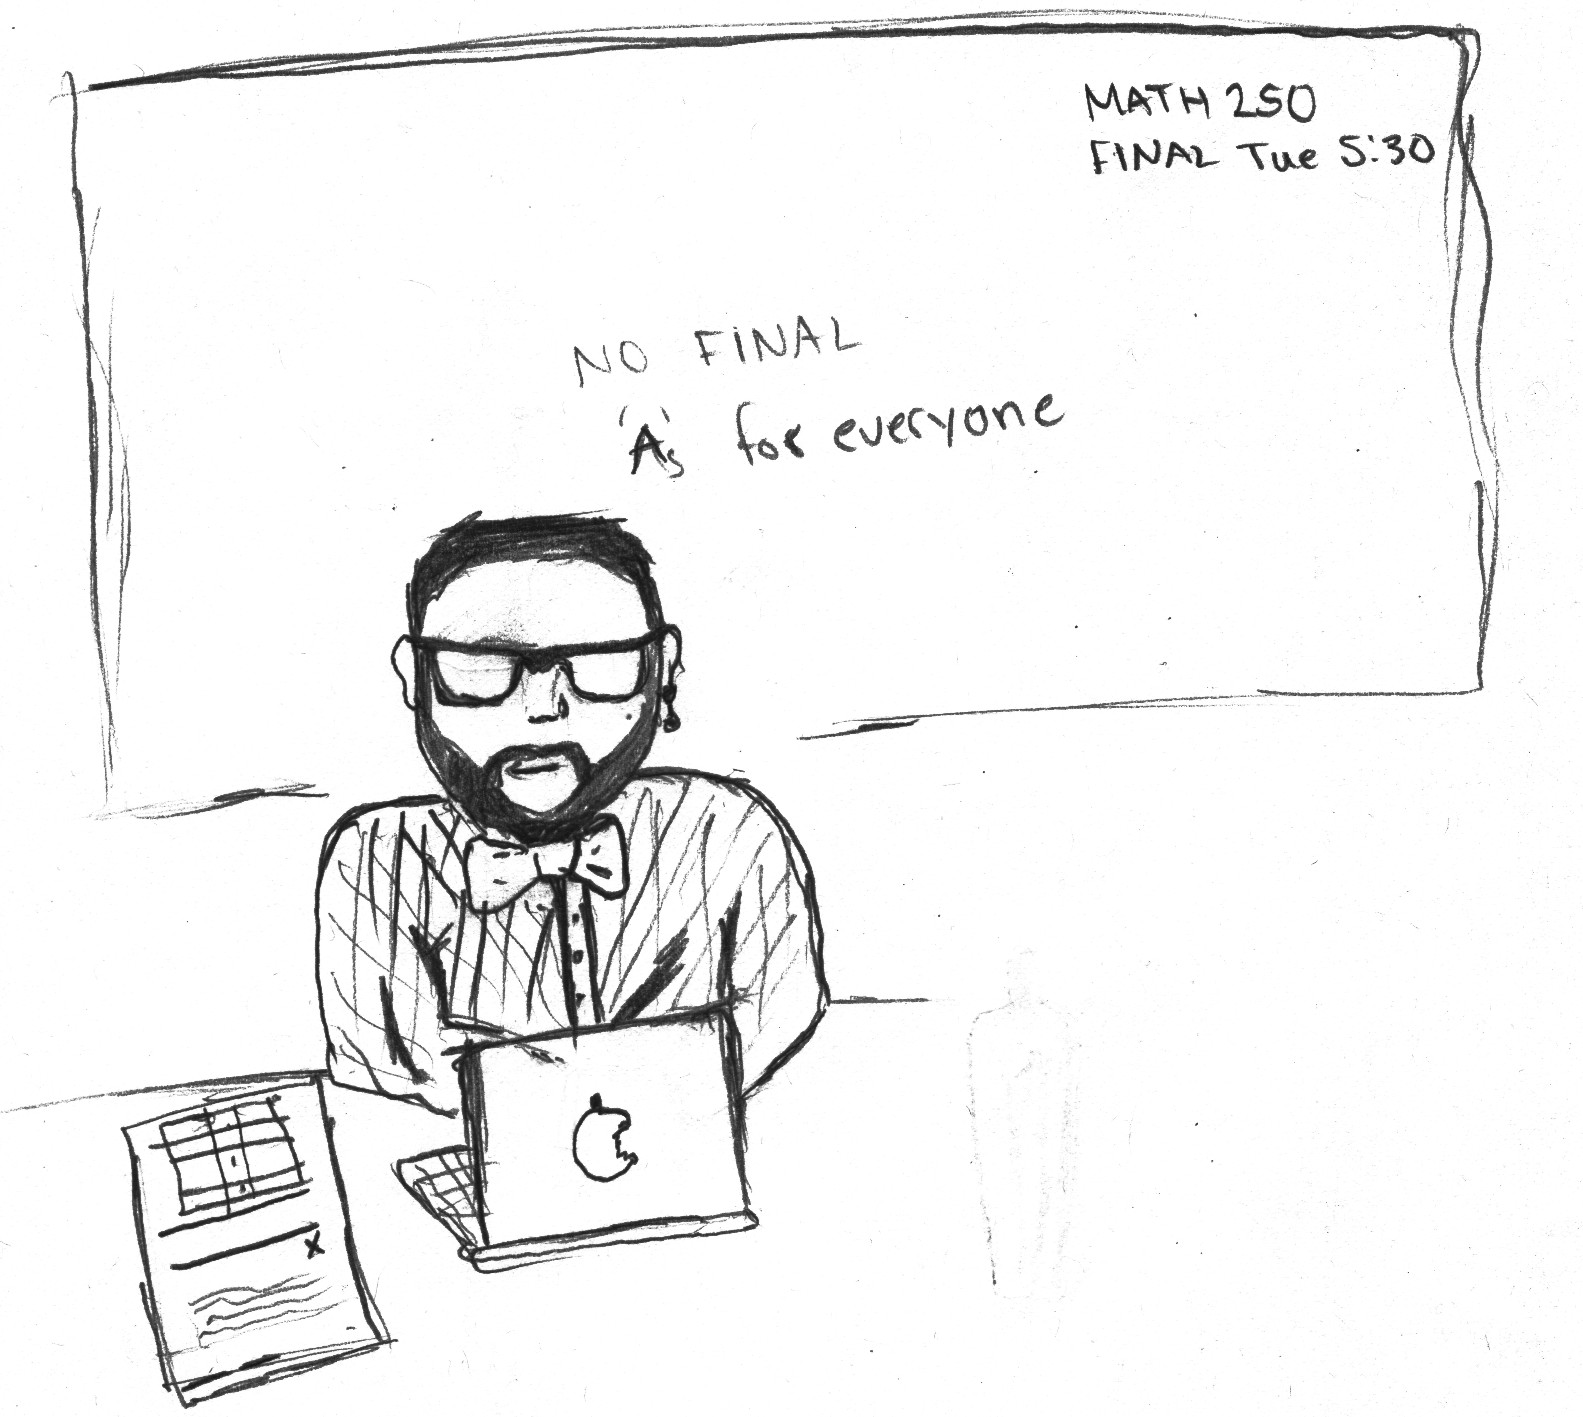 MATH 250
FINAL Tue 5:30
NO FINAL
'A's for everyone
X